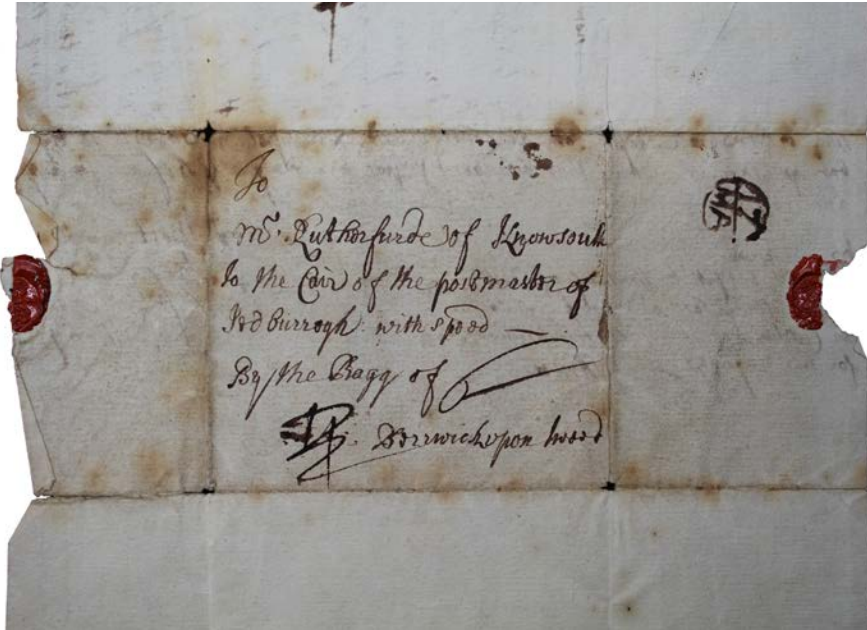 To
Mr. Rutherfurde of Knowsouth
To the Cair of the postmaster of
Jedburrogh: with speed —
By the Bagg of
Berrwick upon tweed
17
MA